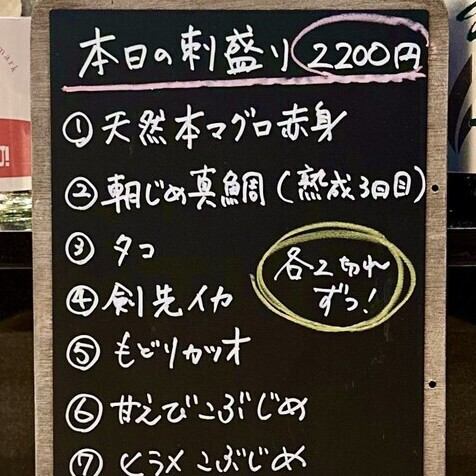 本日の刺盛り 2200円
①天然本マグロ赤身
②朝じめ真鯛(熟成3日目)
③タコ
④剣先イカ
各2切れ
ずつ!
⑤もどりカツオ
⑥甘えびこぶじめ
⑦ヒラメこぶじめ
mark